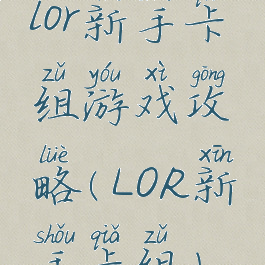 lor新手卡
zǔ yóu xì gōng
组游戏攻
lüè xīn
略(LOR新
shǒu qiǎ zǔ
手卡组)